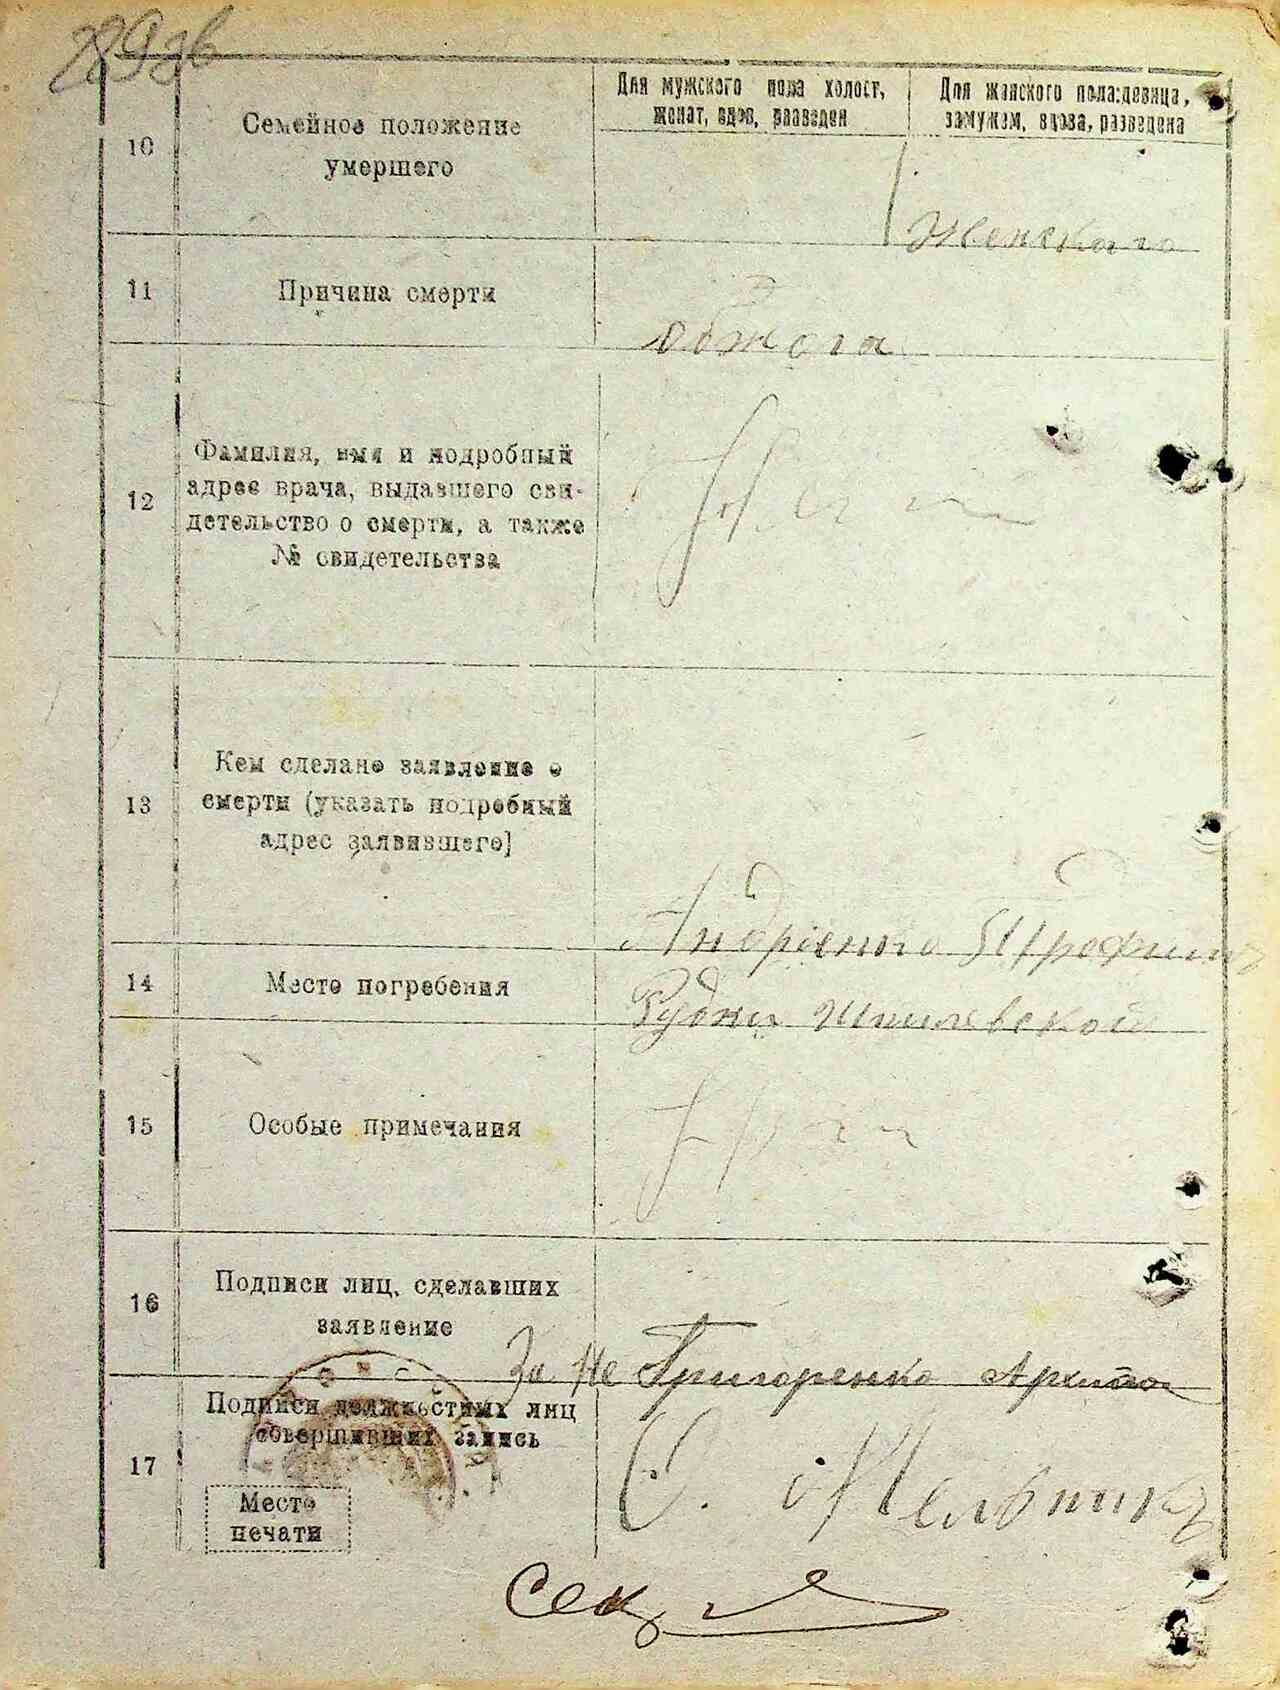 10
Семейное положение
умершего
Для мужского пола холост,
женат, вдов, разведен
Для женского пола: девица,
замужем, вдова, разведена
женскаго
11
Причина смерти
обжога
12
Фамилия, имя и подробный
адрес врача, выдавшего сви-
детельство о смерти, а также
№ свидетельства
13
Кем сделано заявление о
смерти (указать подробный
адрес заявившего]
Андріенко
14
Место погребения
Рудни Шпилевской
15
Особые примечания
16
Подписи лиц, сделавших
заявление
За не Григоренко
17
Подписи должностных лиц
совершивших запись
С. Мельник
Место
печати
Сек